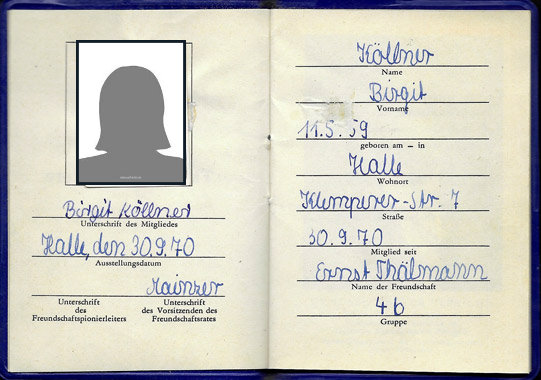 Birgit Köllner
Unterschrift des Mitgliedes
Halle, den 30.9.70
Ausstellungsdatum
Mainzer
Unterschrift
des
Freundschaftspionierleiters
Unterschrift
des Vorsitzenden des
Freundschaftsrates
Köllner
Name
Birgit
Vorname
11.5.59
geboren am – in
Halle
Wohnort
Klemperer-Str. 7
Straße
30.9.70
Mitglied seit
Ernst Thälmann
Name der Freundschaft
4b
Gruppe